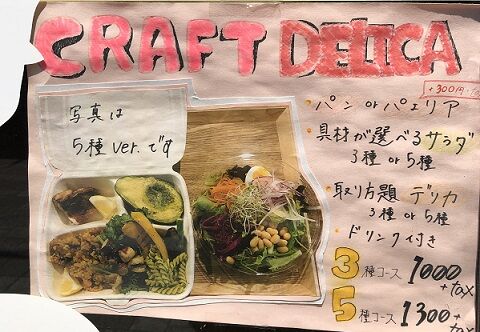 CRAFT DELICA
写真は
5種 ver. です
+300円+tax
・パン or パエリア
・具材が選べるサラダ
3種 or 5種
・取り方題 デリカ
3種 or 5種
・ドリンク付き
3種コース 1000+tax
5種コース 1300+tax